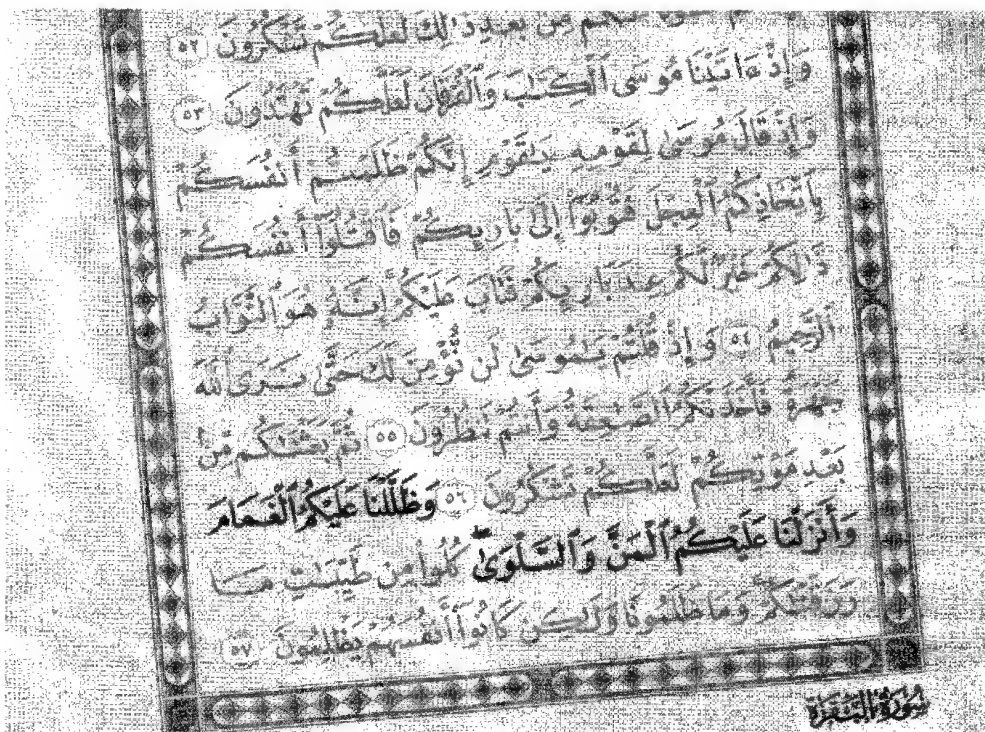 مِّنۢ بَعْدِ ذَٰلِكَ لَعَلَّكُمْ تَشْكُرُونَ ٥٢
وَإِذْ ءَاتَيْنَا مُوسَى ٱلْكِتَٰبَ وَٱلْفُرْقَانَ لَعَلَّكُمْ تَهْتَدُونَ ٥٣
وَإِذْ قَالَ مُوسَىٰ لِقَوْمِهِۦ يَٰقَوْمِ إِنَّكُمْ ظَلَمْتُمْ أَنفُسَكُم
بِٱتِّخَاذِكُمُ ٱلْعِجْلَ فَتُوبُوٓا۟ إِلَىٰ بَارِئِكُمْ فَٱقْتُلُوٓا۟ أَنفُسَكُمْ
ذَٰلِكُمْ خَيْرٌ لَّكُمْ عِندَ بَارِئِكُمْ فَتَابَ عَلَيْكُمْ إِنَّهُۥ هُوَ ٱلتَّوَّابُ
ٱلرَّحِيمُ ٥٤ وَإِذْ قُلْتُمْ يَٰمُوسَىٰ لَن نُّؤْمِنَ لَكَ حَتَّىٰ نَرَى ٱللَّهَ
جَهْرَةً فَأَخَذَتْكُمُ ٱلصَّٰعِقَةُ وَأَنتُمْ تَنظُرُونَ ٥٥ ثُمَّ بَعَثْنَٰكُم مِّنۢ
بَعْدِ مَوْتِكُمْ لَعَلَّكُمْ تَشْكُرُونَ ٥٦ وَظَلَّلْنَا عَلَيْكُمُ ٱلْغَمَامَ
وَأَنزَلْنَا عَلَيْكُمُ ٱلْمَنَّ وَٱلسَّلْوَىٰ ۖ كُلُوا۟ مِن طَيِّبَٰتِ مَا
رَزَقْنَٰكُمْ ۖ وَمَا ظَلَمُونَا وَلَٰكِن كَانُوٓا۟ أَنفُسَهُمْ يَظْلِمُونَ ٥٧
سُورَةُ البَقَرَة